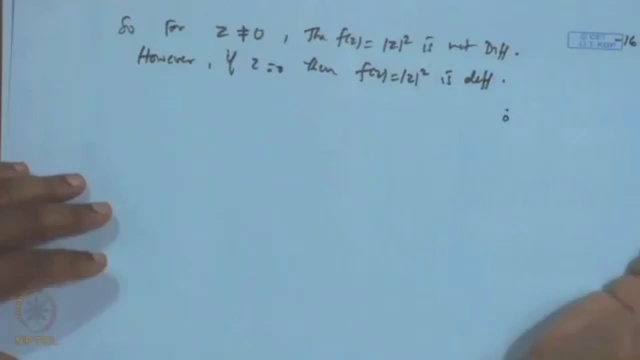 So for z ≠ 0, the f(z) = |z|² is not Diff.
However, if z = 0 then f(z) = |z|² is diff.
-16
NPTEL